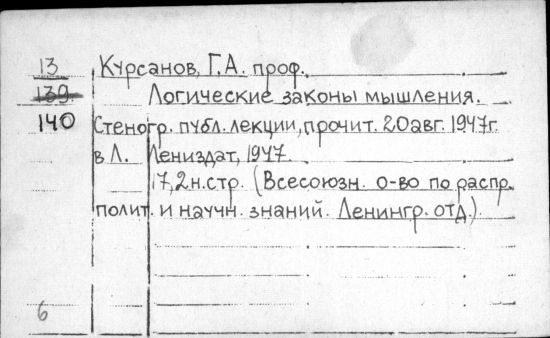 13 Курсанов, Г.А. проф.
139 Логические законы мышления.
140 Стеногр. публ. лекции, прочит. 20 авг. 1947г.
в Л. Лениздат, 1947.
17,2н.стр. (Всесоюзн. о-во по распр.
полит. и научн. знаний. Ленингр. отд.).
6